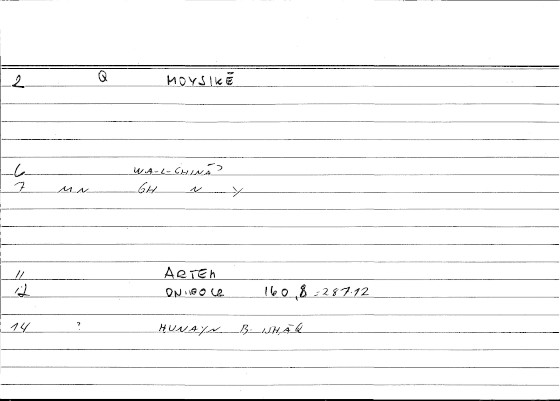 2 Q MOYSIKĒ
6 WA-L-GHINĀʾ
7 MN GH N Y
11 ARTEM
12 ONIROCR 160,8 = 287.12
14 ? HUNAYN B. ISHĀQ